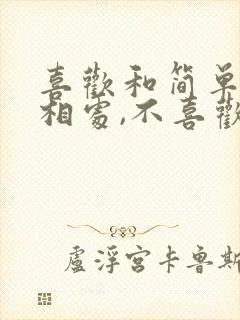 喜歡和簡單
相處,不喜歡
盧浮宮卡魯斯